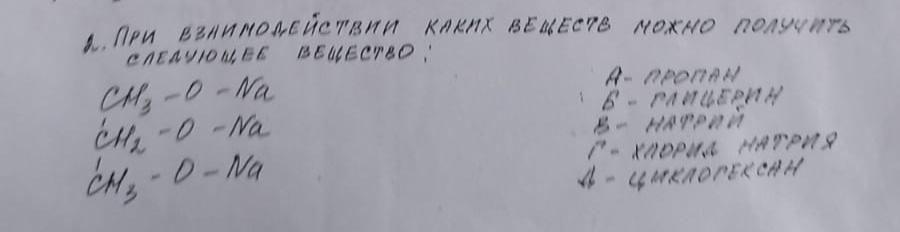 2. ПРИ ВЗАИМОДЕЙСТВИИ КАКИХ ВЕЩЕСТВ МОЖНО ПОЛУЧИТЬ
СЛЕДУЮЩЕЕ ВЕЩЕСТВО:
CH3 - O - Na
CH2 - O - Na
CH3 - O - Na
А - ПРОПАН
Б - ГЛИЦЕРИН
В - НАТРИЙ
Г - ХЛОРИД НАТРИЯ
Д - ЦИКЛОГЕКСАН